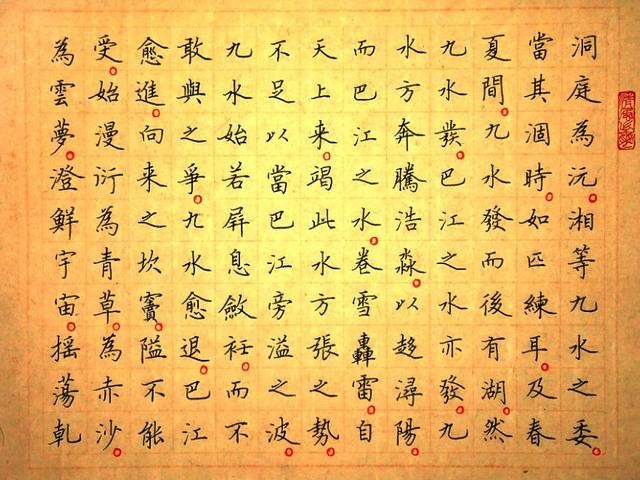 洞庭為沅。湘等九水之委。
當其涸時。如匹練耳。及春
夏間。九水發而後有湖。然
九水發。巴江之水亦發。九
水方奔騰浩淼。以趍潯陽。
而巴江之水。卷雪轟雷。自
天上来。竭此水方張之勢。
不足以當巴江旁溢之波。
九水始若屏息斂衽。而不
敢與之爭。九水愈退。巴江
愈進。向来之坎竇。隘不能
受。始漫衍為青草。為赤沙。
為雲夢。澄鮮宇宙。摇蕩乹